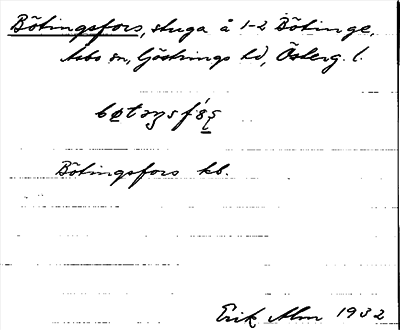 Bötingsfors, stuga å 1-2 Bötinge,
Asbo sn, Göstrings hd, Österg. l.
Bötingsfors kb.
Erik Alm 1932